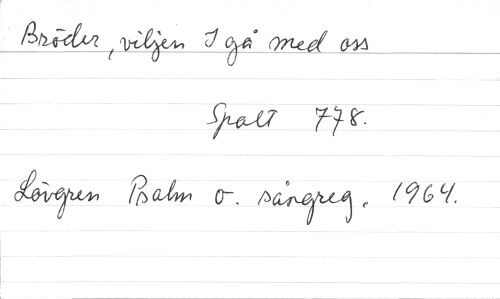 Bröder, viljen I gå med oss
Spalt 778.
Lövgren Psalm o. sångreg. 1964.